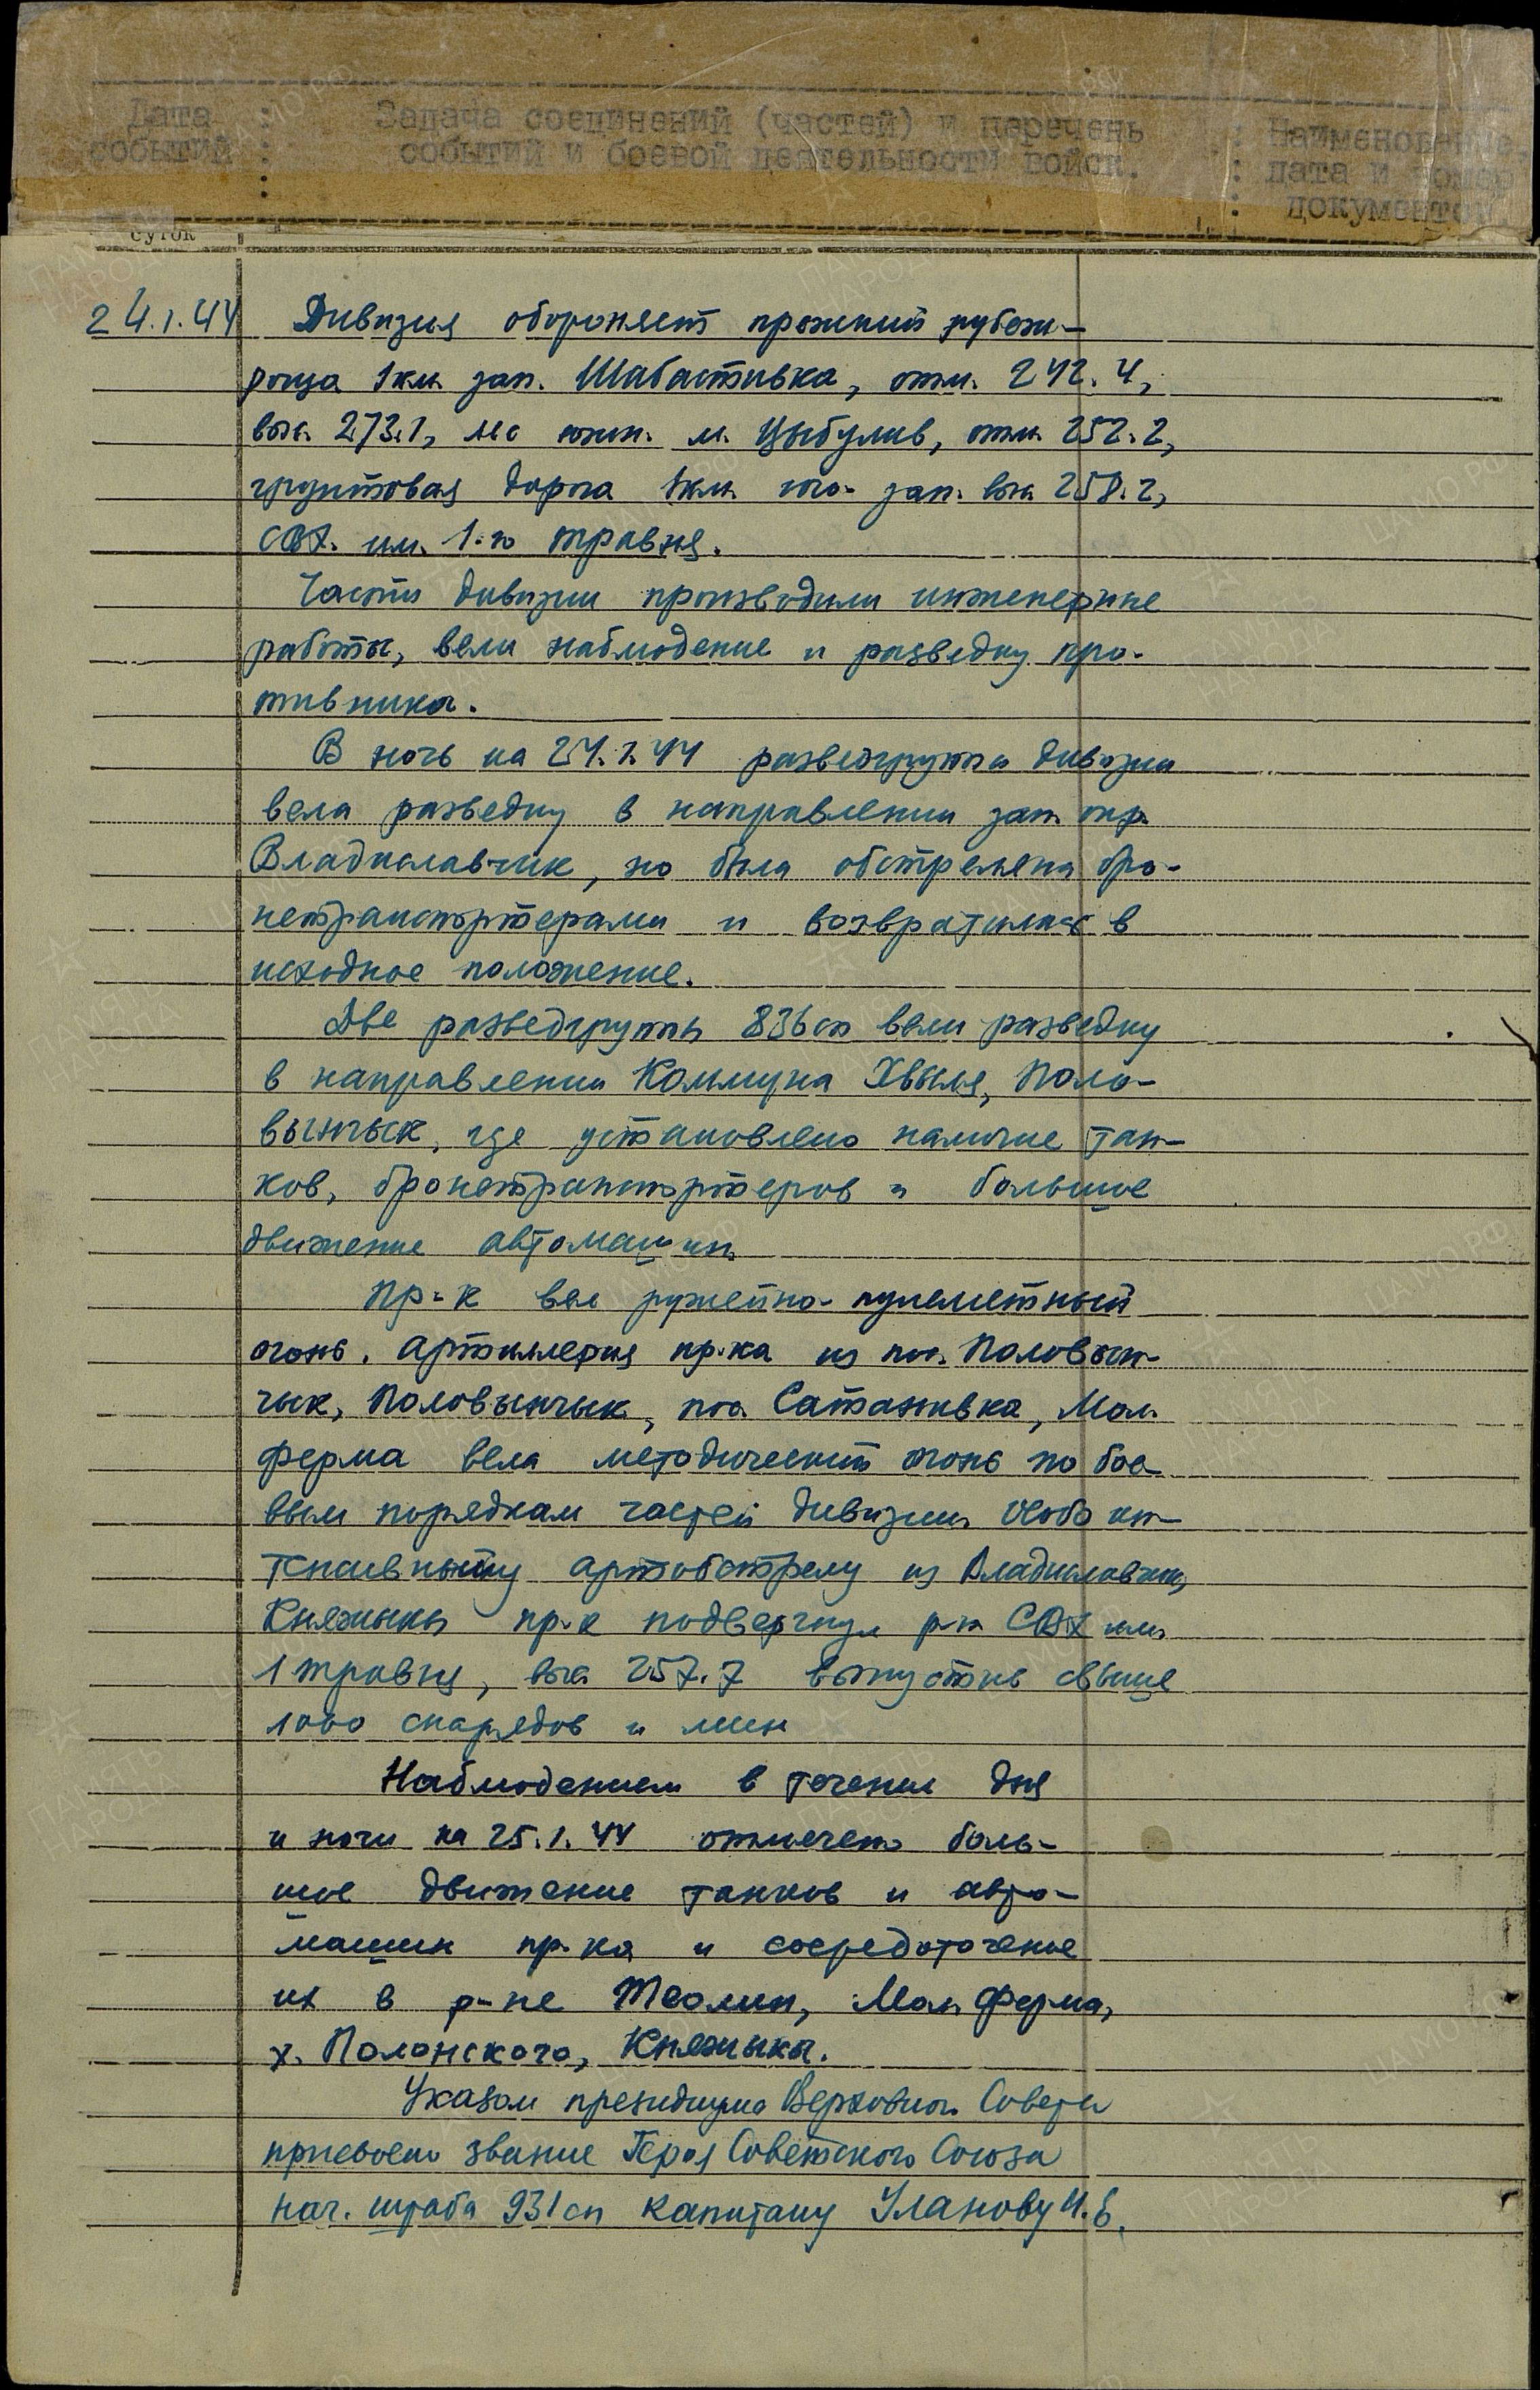 Дата событий : Задача соединений (частей) и перечень событий и боевой деятельности войск. : Наименование, дата и номер документов
суток
24.1.44 Дивизия обороняет прежний рубеж-
роща 1 км. зап. Шабастивка, отм. 242.4,
выс. 273.1, лес южн. м. Цыбулив, отм. 252.2,
грунтовая дорога 1 км. юго-зап. выс. 258.2,
свх. им. 1-го травня.
Части дивизии производили инженерные
работы, вели наблюдение и разведку про-
тивника.
В ночь на 24.1.44 разведгруппа дивизии
вела разведку в направлении зап. окр.
Владиславчик, но была обстреляна бро-
нетранспортерами и возвратилась в
исходное положение.
Две разведгруппы 836 сп вели разведку
в направлении Коммуна Хвыля, Поло-
вынчык, где установлено наличие тан-
ков, бронетранспортеров и большое
движение автомашин.
Пр-к вел ружейно-пулеметный
огонь. Артиллерия пр-ка из пос. Половын-
чык, Половынчык, пос. Сатанивка, Мол.
ферма вела методический огонь по бое-
вым порядкам частей дивизии. Особо ин-
тенсивному артобстрелу из Владиславчик,
Княжыкы пр-к подвергнул р-н СВХ им.
1 травня, выс. 257.7 выпустив свыше
1000 снарядов и мин
Наблюдением в течение дня
и ночи на 25.1.44 отмечено боль-
шое движение танков и авто-
машин пр-ка и сосредоточение
их в р-не Теолин, Мол. Ферма,
х. Полонского, Княжыкы.
Указом президиума Верховного Совета
присвоено звание Героя Советского Союза
нач. штаба 931 сп капитану Уланову И.Е.